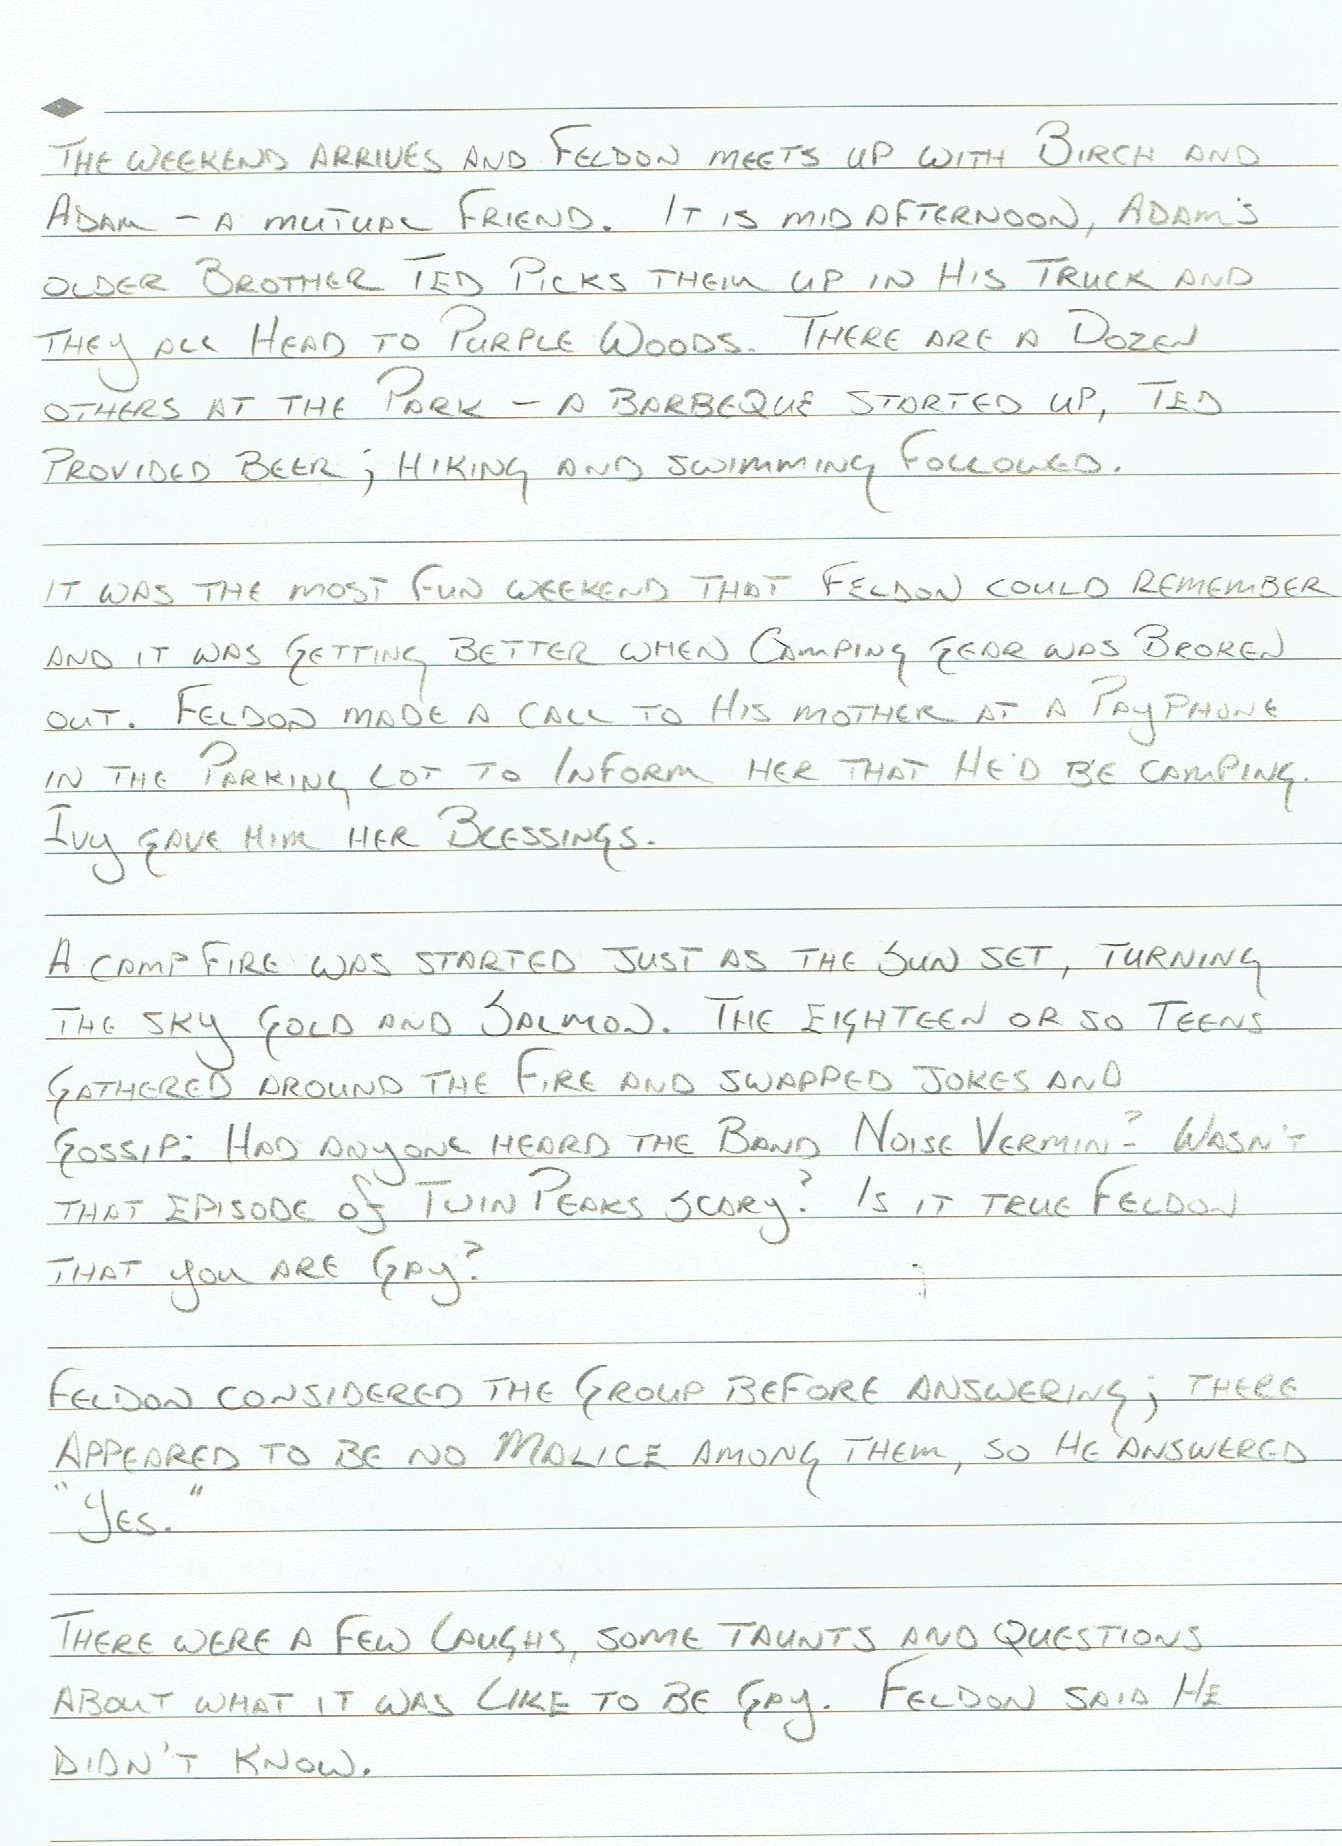 The weekend arrives and Feldon meets up with Birch and
Adam – a mutual friend. It is mid afternoon, Adam's
older Brother Ted Picks them up in His Truck and
they all Head to Purple Woods. There are a Dozen
others at the Park – a barbeque started up, Ted
Provided Beer; hiking and swimming Followed.
it was the most Fun weekend that Feldon could remember
and it was Getting Better when Camping Gear was Broken
out. Feldon made a call to His mother at a PayPhone
in the Parking Lot to Inform her that He'd be camping.
Ivy gave him her Blessings.
A camp Fire was started just as the Sun set, turning
the sky Gold and Salmon. The Eighteen or so Teens
Gathered around the Fire and swapped jokes and
Gossip: Had anyone heard the Band Noise Vermin? Wasn't
that episode of Twin Peaks scary? Is it true Feldon
that you are Gay?
Feldon considered the Group before answering; there
Appeared to be no Malice among them, so He answered
"Yes."
There were a Few Laughs, some taunts and questions
about what it was Like to be Gay. Feldon said He
didn't know.